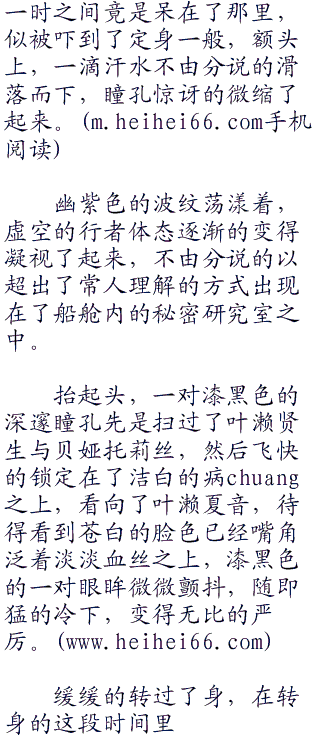 一时之间竟是呆在了那里，
似被吓到了定身一般，额头
上，一滴汗水不由分说的滑
落而下，瞳孔惊讶的微缩了
起来。(m.heihei66.com手机
阅读)
幽紫色的波纹荡漾着，
虚空的行者体态逐渐的变得
凝视了起来，不由分说的以
超出了常人理解的方式出现
在了船舱内的秘密研究室之
中。
抬起头，一对漆黑色的
深邃瞳孔先是扫过了叶濑贤
生与贝娅托莉丝，然后飞快
的锁定在了洁白的病chuang
之上，看向了叶濑夏音，待
得看到苍白的脸色已经嘴角
泛着淡淡血丝之上，漆黑色
的一对眼眸微微颤抖，随即
猛的冷下，变得无比的严
厉。(www.heihei66.com)
缓缓的转过了身，在转
身的这段时间里